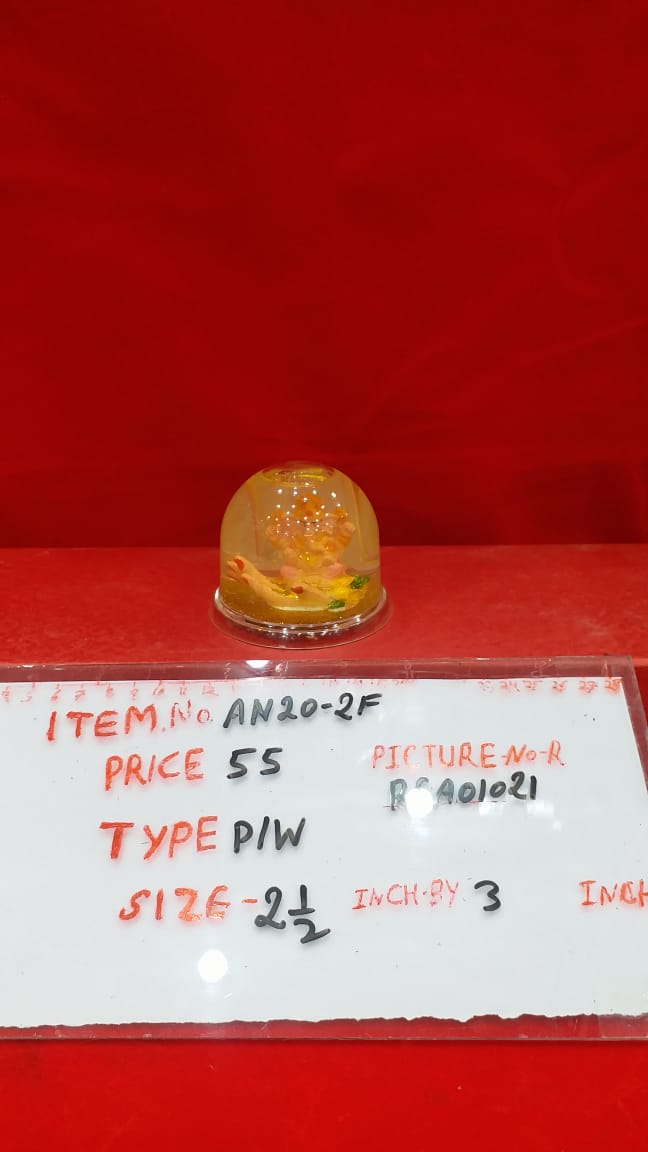 ITEM.No. AN20-2F
PRICE 55
PICTURE-No-R
TYPE P/W
SIZE-2 1/2 INCH-BY 3 INCH